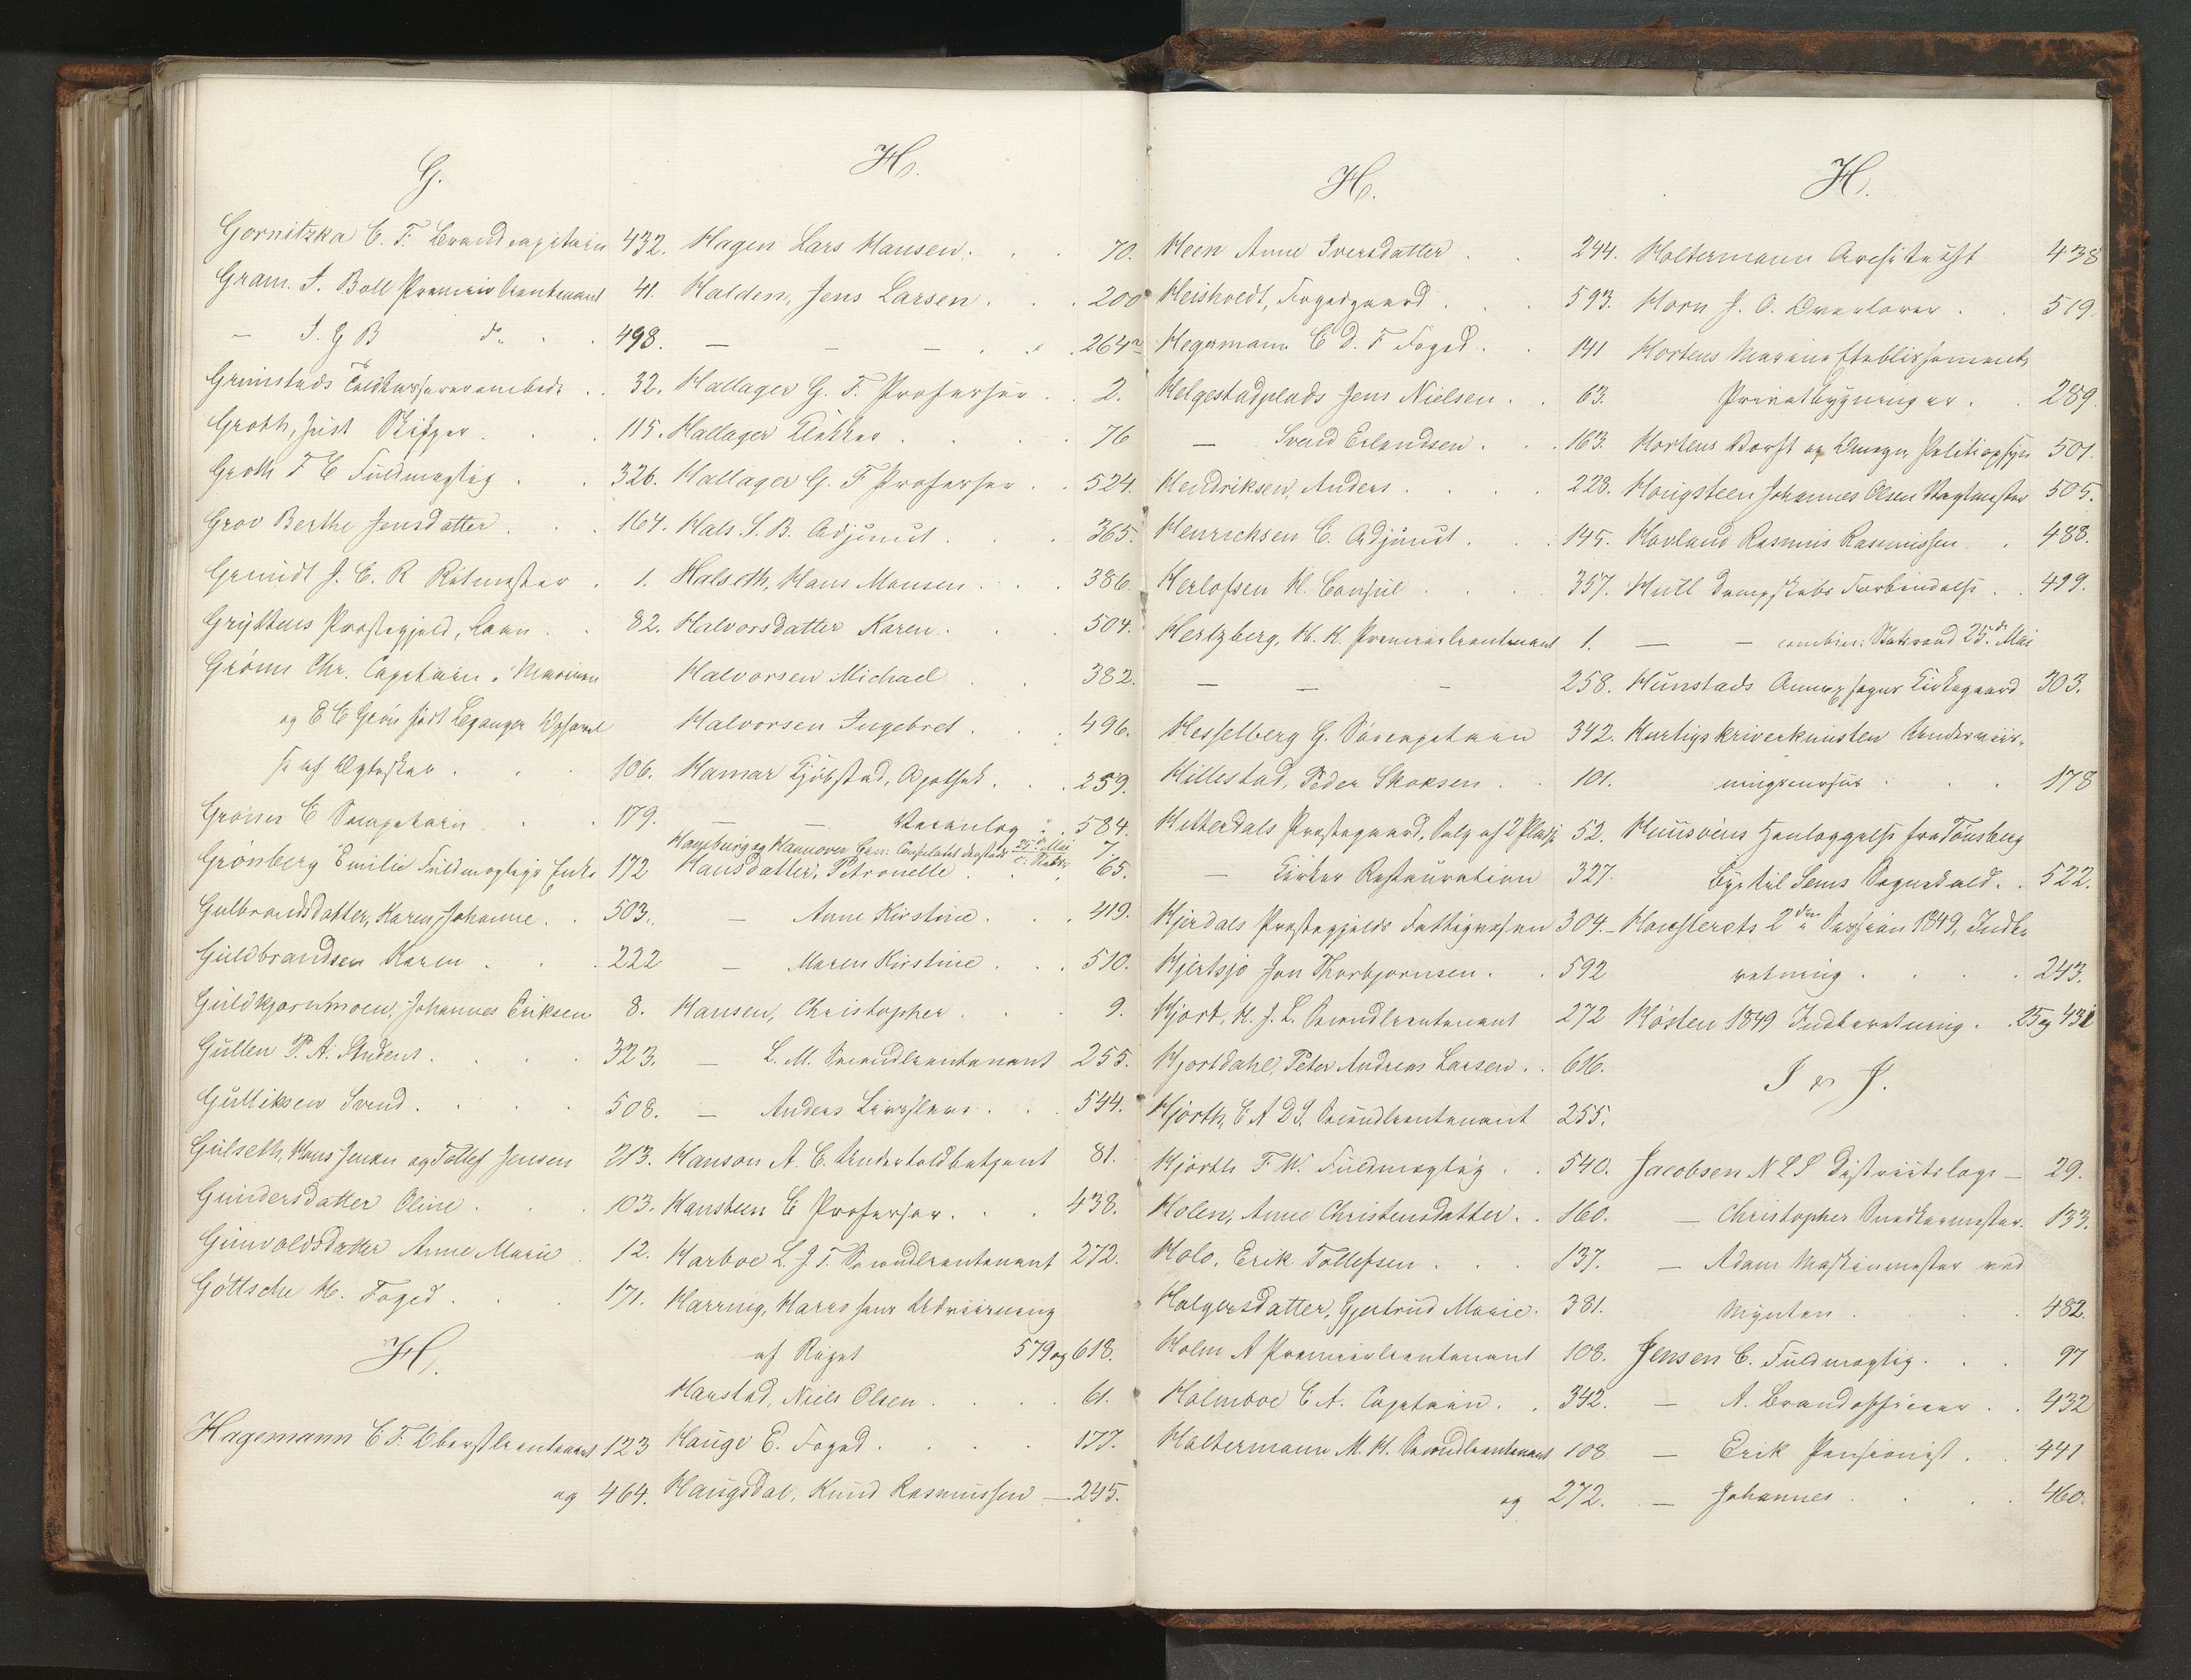 G.
Gornitzka C. F. Brandcapitain 432.
Gram. J. Boll Premierlieutenant 41.
— J. G B do 498.
Grimstads Toldkassererembede 32.
Groth, Just Skipper 115.
Groth T C Fuldmægtig 326.
Grov Berthe Jensdatter 164.
Grundt J. C. R Ritmester 1.
Gryttens Præstegjeld, Laan 82.
Grönn Chr. Capitain i Marinen
og E C Grön født Leganger Ophævel
se af Ægteskab 106.
Grönn C Søcapitain 179.
Grönberg Emilie Fuldmægtigs Enke 172
Gulbrandsdatter, Karen Johanne 503.
Guldbrandsen Karen 222
Guldkjernmoen, Johannes Eriksen 8.
Gullen P. A. Student 323.
Gulliksen Svend 508.
Gulseth, Hans Jensen og Tollef Jensen 213.
Gundersdatter Oline 103.
Gunvoldsdatter Anne Marie 12.
Göttsche H. Foged 171.
H.
Hagemann C F. Oberstlieutenant 123
og 464.
H.
Hagen Lars Hansen 70.
Halden, Jens Larsen 200
— — — 264
Hallager G. F. Professor 2.
Hallager Klokker 76
Hallager G. F Professor 524.
Hals S. B. Adjunct 365.
Halseth, Hans Monsen 386.
Halvorsdatter Karen 504.
Halvorsen Michael 382.
Halvorsen Ingebret 496.
Hamar Kjöbstad, Apothek 259.
— — Veianlæg 584.
Hamburg og Hannover Gen: Consulatet 7.
Hansdatter, Petronelle 65.
— Anne Kirstine 419.
— Maren Kirstine 510.
Hansen, Christopher 9.
— L. M. Secondlieutenant 255.
— Anders Livsslave 544.
Hanson A. C. Undertoldbetjent 81.
Hansteen C Professor 438.
Harboe L. J. T. Secondlieutenant 272.
Harring, Harro hans Udviisning
af Riget 579 og 618.
Harstad, Niels Olsen 61.
Hauge E. Foged 177.
Haugsdal, Knud Rasmussen — 245.
H.
Heen Anne Iversdatter 244.
Heisholdt, Fogedgaard 593.
Hegermann C D. F Foged 141
Helgestadplads Jens Nielsen 63.
— Svend Erlandsen 163.
Hendriksen, Anders 228.
Henricksen C. Adjunct 145.
Herlofsen H. Consul 357.
Hertzberg, H. K. Premierlieutenant 1.
— — — 258.
Hesselberg G. Söecapitain 342.
Hillestad, Peder Skoksen 101.
Hitterdals Præstegaard, Salg af 2 Pladse 52.
— Kirkes Restauration 327.
Hjerdals Præstegjelds Fattigvæsen 304.
Hjertsjo Jon Thorbjornsen 592
Hjort, H. J. L. Secondlieutenant 272
Hjortdahl, Peter Andreas Larsen 616.
Hjorth, C A D S. Secondlieutenant 255.
Hjorth F. W. Fuldmægtig 540.
Holen, Anne Christensdatter 160.
Holo, Erik Tollefsen 137.
Holgersdatter, Gjertrud Marie 381.
Holm A Premierlieutenant 108.
Holmboe C A. Capitain 342.
Holtermann M. H. Secondlieutenant 108
og 272.
H.
Holtermann Architecht 438
Horn J. O. Overlærer 519.
Hortens Marine Etablissements
Privatbygninger 289.
Hortens Værft og Omegn Politiopsyn 501.
Hougsteen Johannes Olsen Vagtmester 505.
Hovland Rasmus Rasmussen 488.
Hull Dampskibs Forbindelse 499.
— — combin: Statsraad 25de Mai
Hunstads Annexsogns Kirkegaard 303.
Hurtigskriverkunsten Underviis-
ningscursus 178
Huusöens Henlæggelse fra Tönsberg
Bye til Sems Sognekald 522.
Höiesterets 2den Session 1849, Indbe
retning 243.
Hösten 1849 Indberetning 25 og 431
I & J.
Jacobsen N L S Districtslæge — 29.
— Christopher Snedkermester 133.
— Adam Maskinmester ved
Mynten 482.
Jensen C. Fuldmægtig 97
— A. Brandofficeer 432
— Erik Pensionist 441
— Johannes 460.